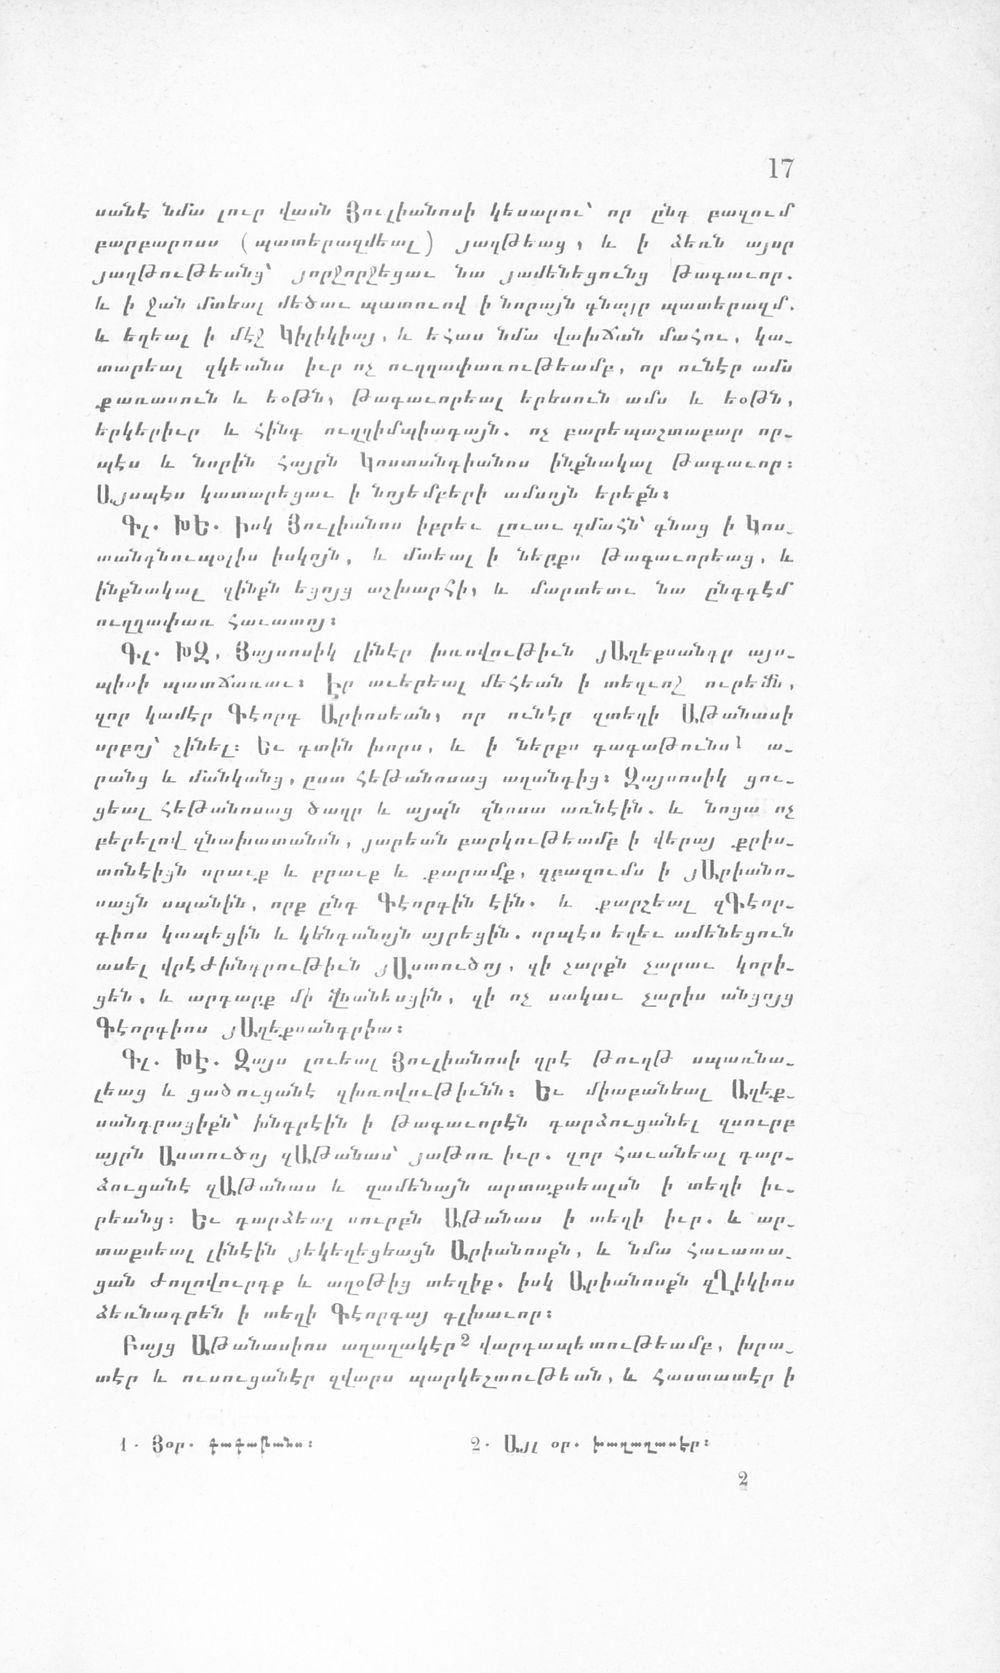 17
սանէ նմա լուր վասն Յուլիանոսի կեսարու՝ որ ընդ բազում
բարբարոսս (պատերազմեալ) յաղթեաց, և ի ձեռն այսր
յաղթութեանց՝ յորջորջեցաւ նա յամենեցունց թագաւոր.
և ի ջան մտեալ մեծաւ պատուով ի նորայն գնայր պատերազմ.
և եղեալ ի մէջ Կիլիկիայ, և եհաս նմա վախճան մահու, կա֊
տարեալ զկեանս իւր ոչ ուղղափառութեամբ, որ ունէր ամս
քառասուն և եօթն, թագաւորեալ երեսուն ամս և եօթն,
երկերիւր և հինգ ուղղիմպիադայն. ոչ բարեպաշտաբար որ֊
պէս և նորին հայրն Կոստանդիանոս ինքնակալ թագաւոր:
Այսպէս կատարեցաւ ի նոյեմբերի ամսոյն երեքն:
Գլ. ԽԵ. Իսկ Յուլիանոս իբրեւ լուաւ զմահն՝ գնաց ի Կոս֊
տանդնուպօլիս իսկոյն, և մտեալ ի ներքս թագաւորեաց, և
ինքնակալ զինքն եցոյց աշխարհի, և մարտետւ նա ընդդէմ
ուղղափառ հաւատոյ:
Գլ. ԽԶ. Յայսոսիկ լինէր խռովութիւն յԱղեքսանդր այս֊
պիսի պատճառաւ: Իր աւերեալ մեհեան ի տեղւոջ ուրեմն,
զոր կամէր Գէորգ Արիոսեան, որ ունէր զտեղի Աթանասի
սրբոյ՝ շինել: Եւ գտին խորս, և ի ներքս գագաթունս1 ա֊
րանց և մանկանց, ըստ հեթանոսաց աղանդից: Զայսոսիկ ցու֊
ցեալ հեթանոսաց ծաղր և այպն զնոսա առնէին. և նոցա ոչ
բերելով զնախատանսն, յարեան բարկութեամբ ի վերայ քրիս֊
տոնէիցն սրաւք և բրաւք և քարամք, զբազումս ի յԱրիանո֊
սացն սպանին, որք ընդ Գէորգին էին. և քարշեալ զԳէոր֊
գիոս կապեցին և կենդանւոյն այրեցին. որպէս եղեւ ամենեցուն
ասել վրէժխնդրութիւն յԱստուծոյ, զի չարքն չարաւ կորի֊
ցեն, և արդարք մի վնանեսցին, զի ոչ սակաւ չարիս անցոյց
Գէորգիոս յԱղեքսանդրիա:
Գլ. ԽԷ. Զայս լուեալ Յուլիանոսի գրէ թուղթ սպառնա֊
լեաց և ցածուցանէ զխռովութիւնն: Եւ միաբանեալ Աղեք֊
սանդրացիքն՝ խնդրէին ի թագաւորէն դարձուցանել զսուրբ
այրն Աստուծոյ զԱթանաս՝ յաթոռ իւր. զոր հաւանեալ դար֊
ձուցանէ զԱթանաս և զամենայն արտաքսեալսն ի տեղի իւ֊
րեանց: Եւ դարձեալ սուրբն Աթանաս ի տեղի իւր. և ար֊
տաքսեալ լինէին յեկեղեցեացն Արիանոսքն, և նմա հաւատա֊
ցան ժողովուրդք և աղօթից տեղիք. իսկ Արիանոսքն զՂիկիոս
ձեռնադրեն ի տեղի Գէորգայ գլխաւոր:
Բայց Աթանասիոս աղաղակէր2 վարդապետութեամբ, խրա֊
տէր և ուսուցանէր զվարս պարկեշտութեան, և հաստատէր ի
1. Յօր. գագաթանս: 2. Այլ օր. խաղաղասէր:
2